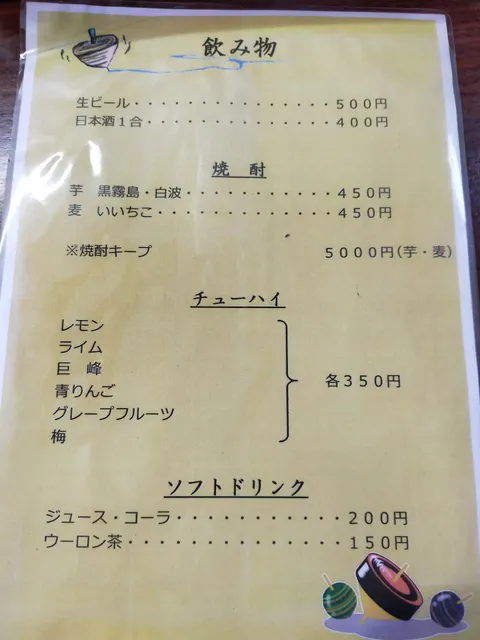 飲み物
生ビール・・・・・・・・・・・・・・・５００円
日本酒１合・・・・・・・・・・・・・・４００円
焼　酎
芋　黒霧島・白波・・・・・・・・・・・・４５０円
麦　いいちこ・・・・・・・・・・・・・・４５０円
※焼酎キープ　５０００円(芋・麦)
チューハイ
レモン
ライム
巨　峰
青りんご
グレープフルーツ
梅
各３５０円
ソフトドリンク
ジュース・コーラ・・・・・・・・・・・・２００円
ウーロン茶・・・・・・・・・・・・・・・１５０円